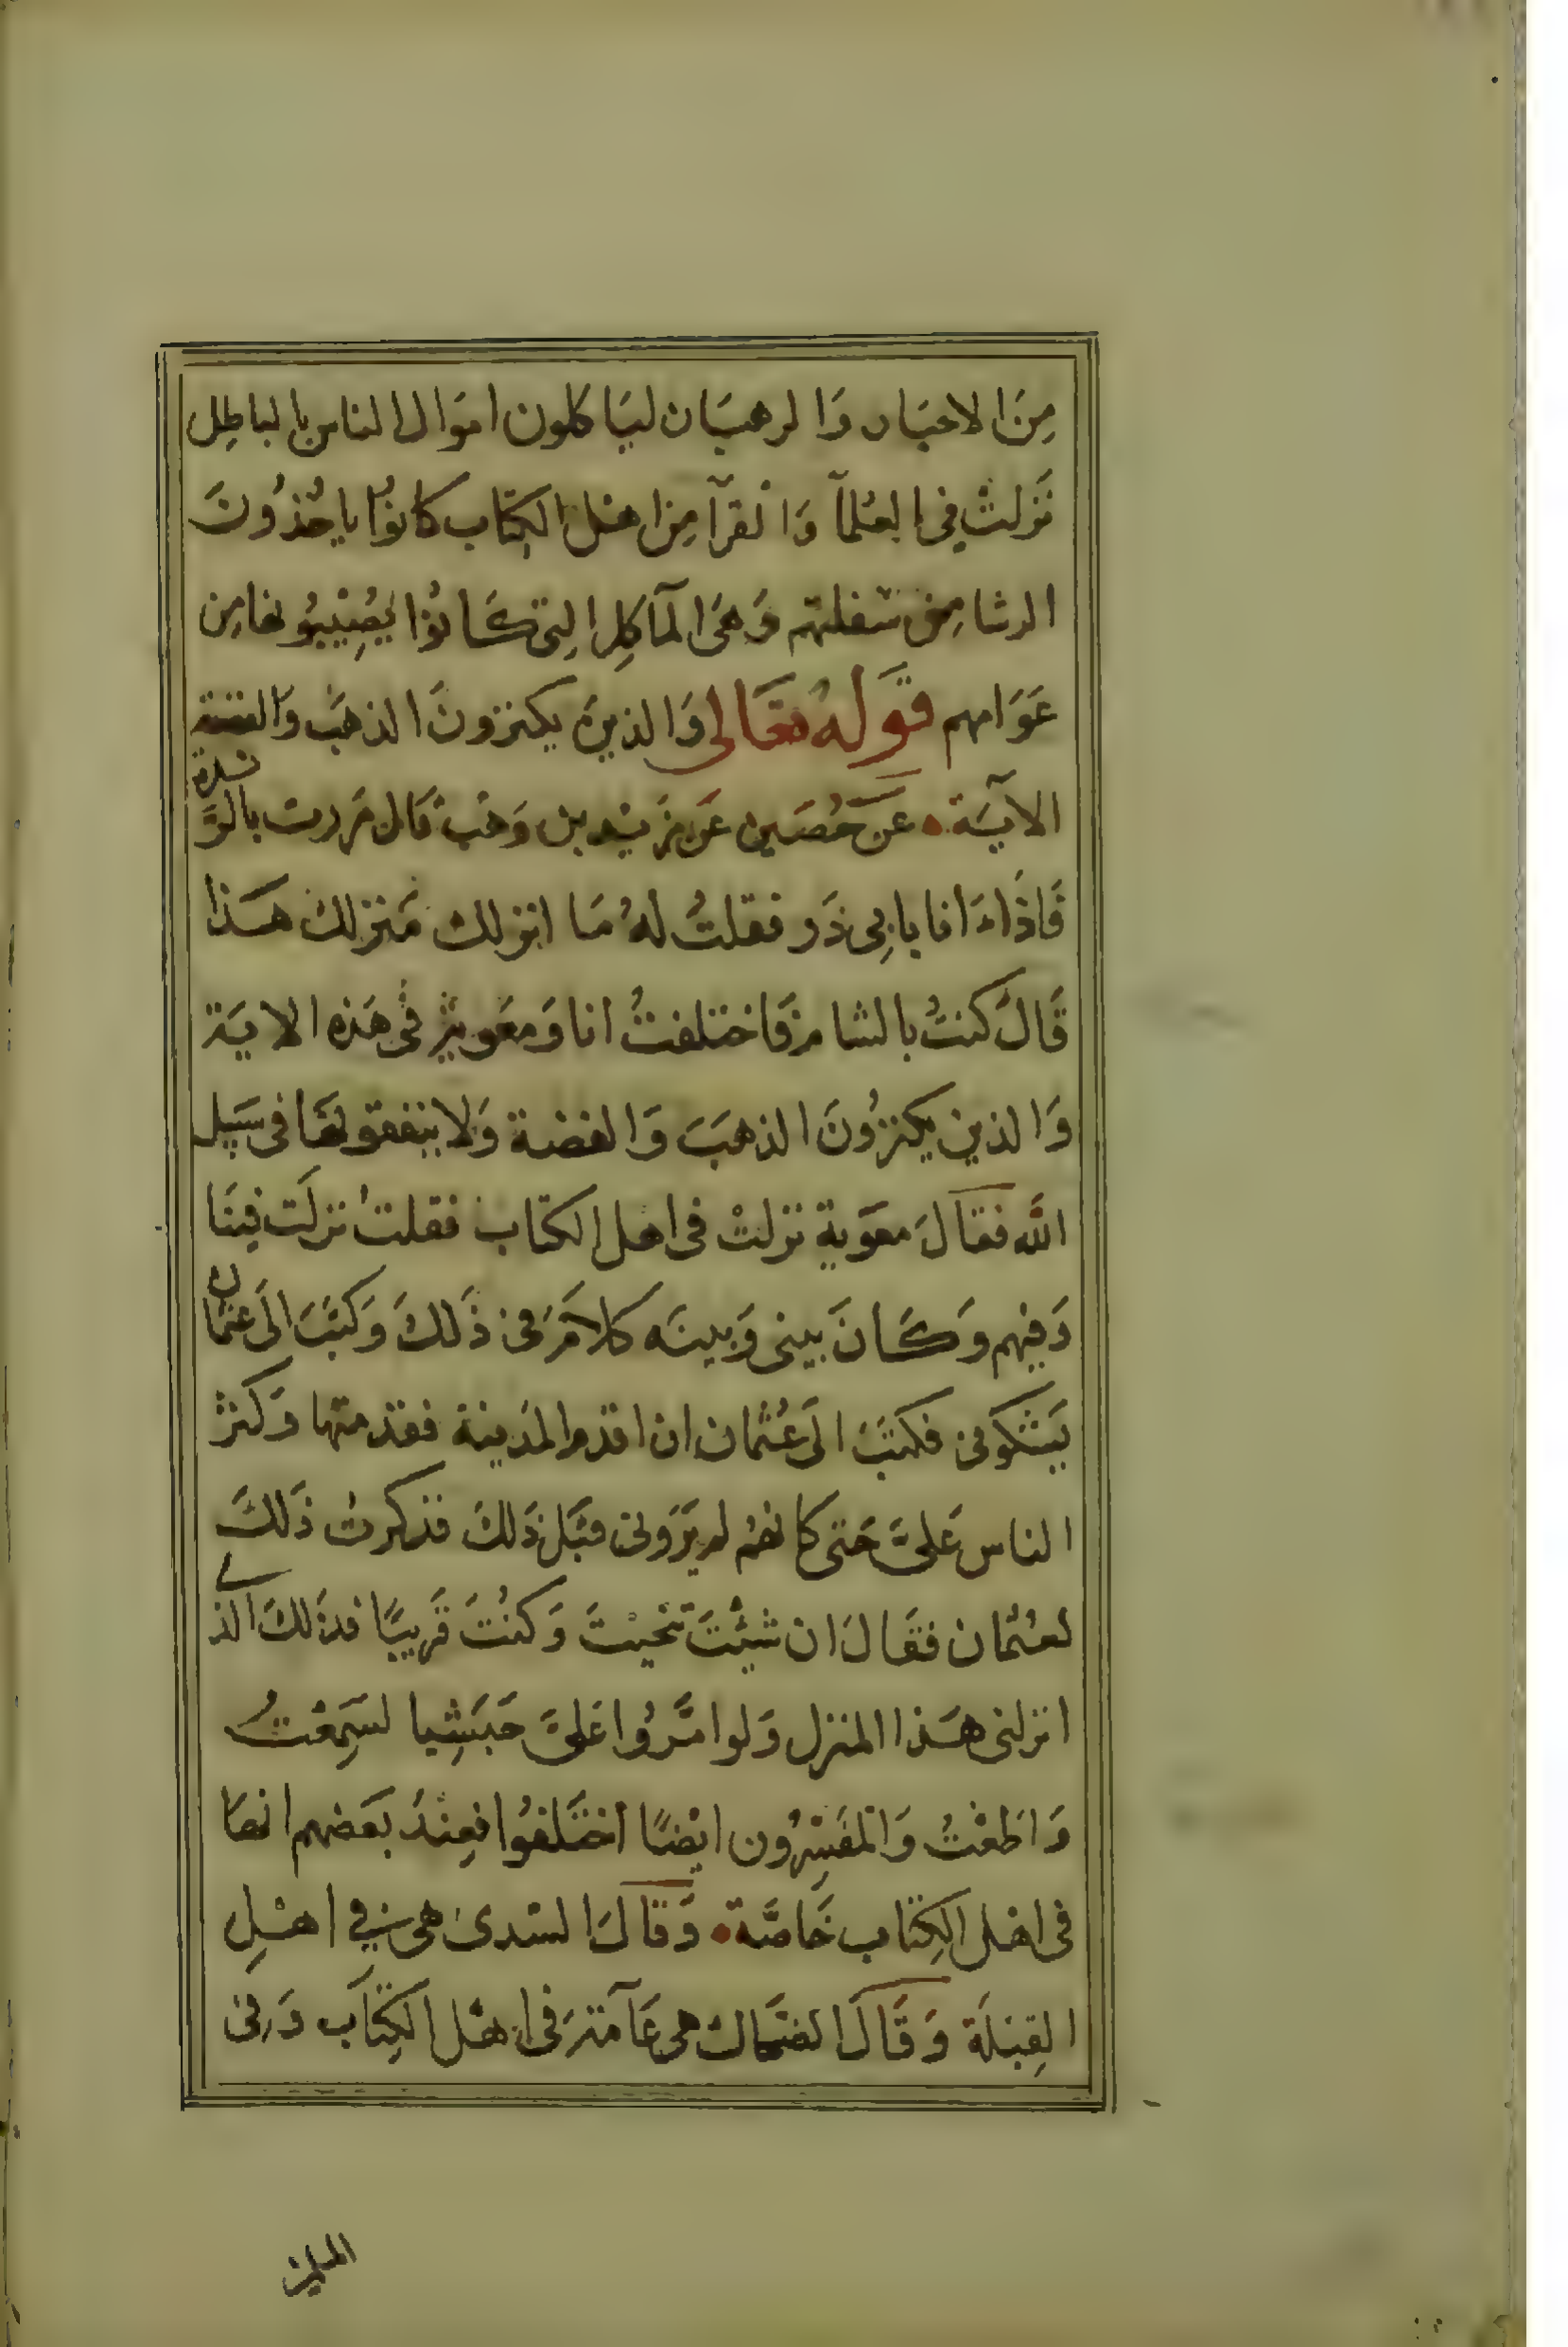 مِنَ الاحبَار وَالرهبَان ليَاكلون امَوال الناس بالباطِل
نَزلتْ في العُلمآ وَالْقرآ مِن اهل الكِتَاب كانوُا ياخُذوُنَ
الرشا مِن سَفلتهم وَهىَ المآكِل التِى كَانوُا يُصِيْبوُنها مِن
عَوَامهم قَولهُ تعَالى وَالذينَ يكنزونَ الذهَب وَالفضة
الآيَة عَن حُصَين عَن زَيْد بن وَهْب قال مَررت بالرَّبذة
فَاذَا انَا بابِى ذَر فقلتُ لهُ مَا انزلك مَنزلك هَذا
قَالَ كنتُ بالشام فَاختلفتُ انا وَمعَوية فى هَذه الايَة
وَالذين يكنزُونَ الذهبَ وَالفضة وَلا ينفقونهَا فى سَبيل
الله فقَالَ معَوية نزلتْ فى اهل الكتاب فقلتُ نزلَت فينَا
وَفيهم وَكَانَ بينى وَبينَه كلامَ فى ذَلكَ وَكتَبَ الَى عثمَان
يَشكوُنى فكتبَ الَى عُثمان ان اقدم المدَينة فقدمتها وَكثر
الناس عَلىَّ حَتى كانهُم لم يَرَونى قبَل ذَلكَ فذكرتُ ذَلكَ
لعُثمان فقَالَ ان شئْتَ تنحيْتَ وَكنُتَ قَريبًا فذلكَ الذى
انزلنى هَذا المنزل وَلو امَّرُوا عَلىَّ حَبَشِيا لسَمِعْتُ
وَاطَعْتُ وَالْمفَسِّرُون ايْضًا اختَلفوُا فعِنْدَ بعَضهم انهَا
فى اهْل الكِتاب خَاصَّة وَقَالَ السّدىُ هى في اهْلِ
القِبْلَة وَقَالَ الضحَّاك هى عَآمّة فى اهْل الكِتَاب وَفى
المسلمين